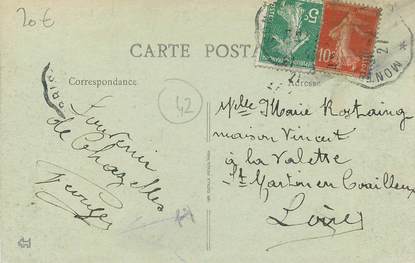 20€
CARTE POSTALE
Correspondance
Adresse
5c
10c
21
42
Souvenir
de Chazelles
Mlle Marie Rostaing
maison Vincent
à la Valette
St Martin en Coailleux
Loire